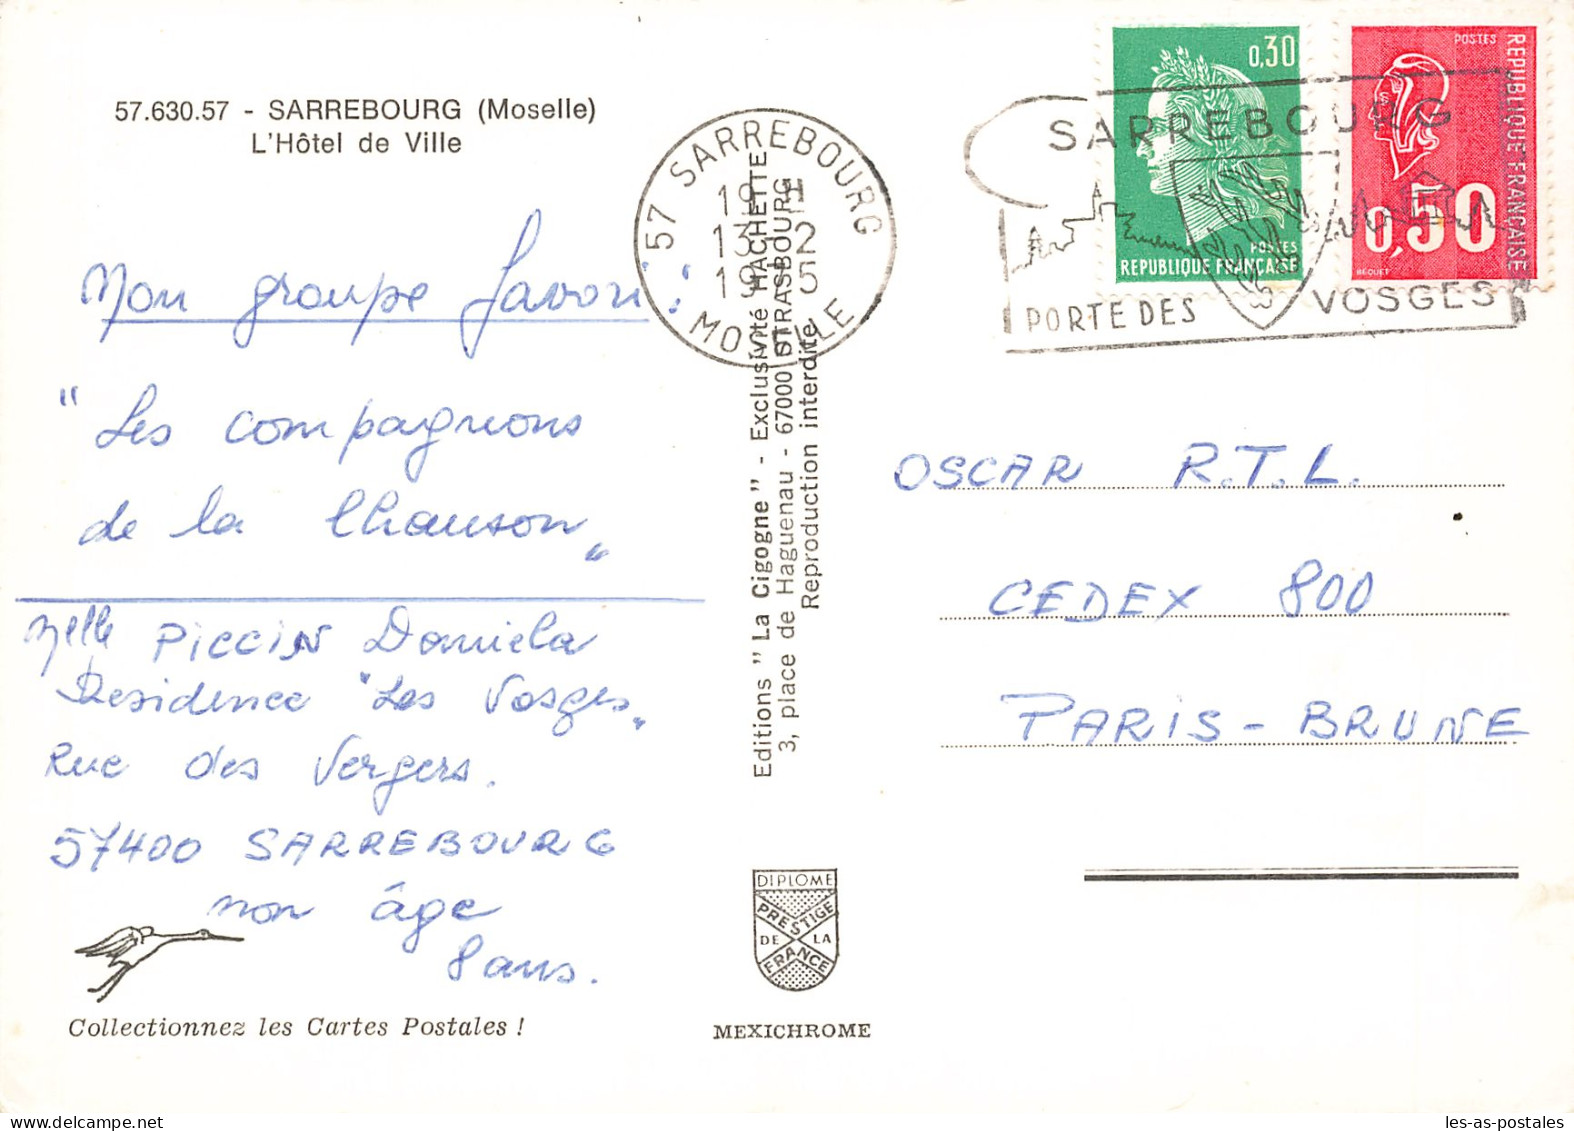 57.630.57 - SARREBOURG (Moselle)
L'Hôtel de Ville
Mon groupe favori :
"Les compagnons
de la Chanson"
Melle PICCIN Daniela
Residence "Les Vosges"
Rue des Vergers.
57400 SARREBOURG
mon âge
8 ans.
Collectionnez les Cartes Postales !
57 SARREBOURG
19 H
13 - 2
19 5
MOSELLE
Editions " La Cigogne " - Exclusivité HACHETTE
3, place de Haguenau - 67000 STRASBOURG
Reproduction interdite
DIPLOME
PRESTIGE
DE LA
FRANCE
MEXICHROME
0,30
POSTES
REPUBLIQUE FRANÇAISE
POSTES
REPUBLIQUE FRANÇAISE
0,50
BEQUET
SARREBOURG
PORTE DES VOSGES
OSCAR R.T.L.
CEDEX 800
PARIS - BRUNE
les-as-postales
delcampe.net